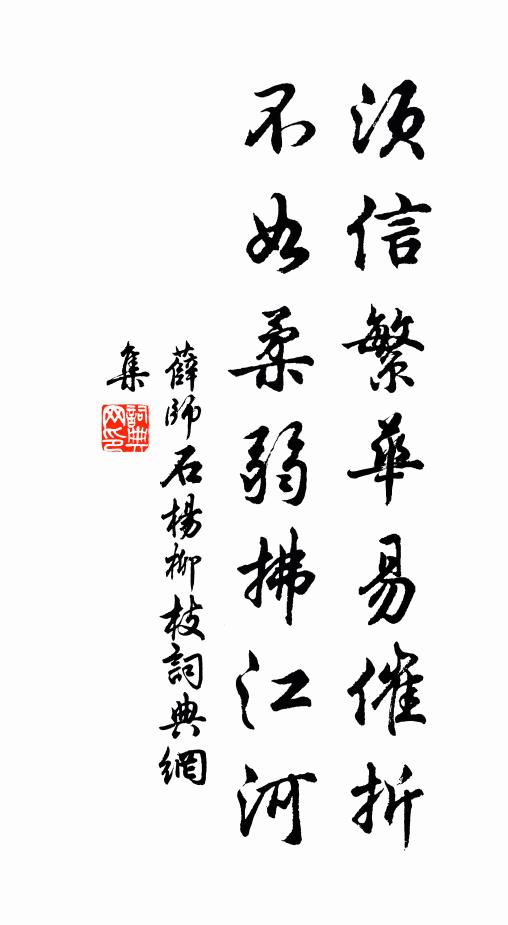 須信繁華易催折
不如柔弱拂江河
薛師石楊柳枝詞典網
集
詞典網印